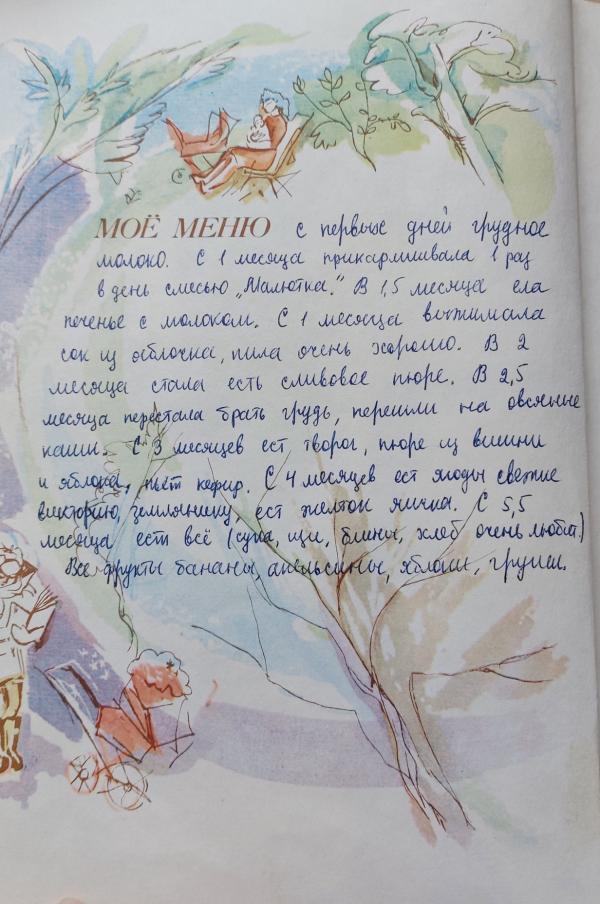 МОЁ МЕНЮ с первых дней грудное
молоко. С 1 месяца прикармливала 1 раз
в день смесью „Малютка." В 1,5 месяца ела
печенье с молоком. С 1 месяца выжимала
сок из яблочка, пила очень хорошо. В 2
месяца стала есть сливовое пюре. В 2,5
месяца перестала брать грудь, перешли на овсяные
каши. С 3 месяцев ест творог, пюре из вишни
и яблока, пьёт кефир. С 4 месяцев ест ягоды свежие
викторию, землянику, ест желток яичка. С 5,5
месяца ест всё (супа, щи, блины, хлеб очень любит.)
Все фрукты бананы, апельсины, яблоки, груши.